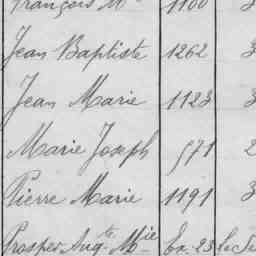 François Mie 1100 3
Jean Baptiste 1262 3
Jean Marie 1123 3
Marie Joseph 571 2
Pierre Marie 1191 3
Prosper Augte Mie Ex. 23